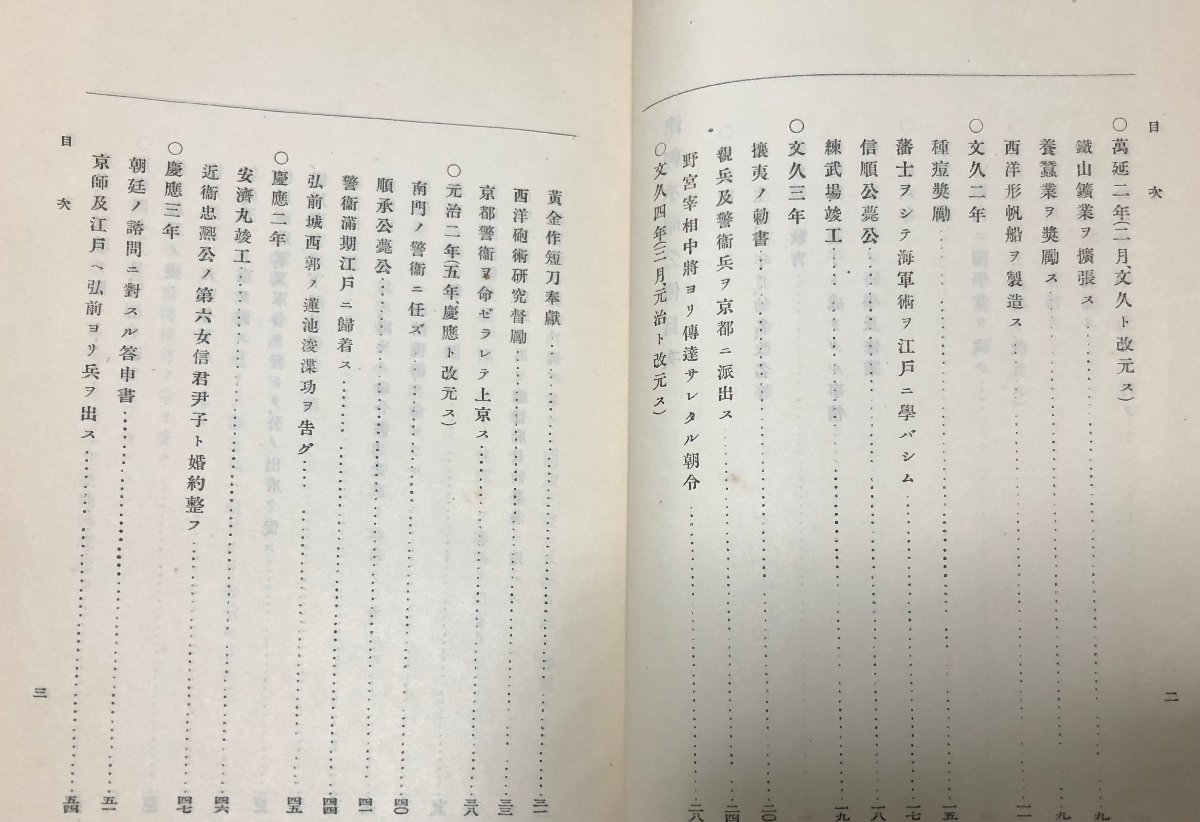 目次
○萬延二年(二月、文久ト改元ス)
鐵山鑛業ヲ擴張ス……九
養蠶業ヲ奬勵ス……九
西洋形帆船ヲ製造ス……一一
○文久二年
種痘奬勵……一五
藩士ヲシテ海軍術ヲ江戸ニ學バシム……一七
信順公薨公……一八
練武場竣工……一九
○文久三年
攘夷ノ勅書……二〇
親兵及警衞兵ヲ京都ニ派出ス……二四
野宮宰相中將ヨリ傳達サレタル朝令……二八
○文久四年(二月、元治ト改元ス)
二
黃金作短刀奉獻……三一
西洋砲術硏究督勵……三三
京都警衞ヲ命ゼラレテ上京ス……三八
○元治二年(五年、慶應ト改元ス)
南門ノ警衞ニ任ズ……四〇
順承公薨公……四一
警衞滿期江戸ニ歸着ス……四四
弘前城西郭ノ蓮池浚渫功ヲ告グ……四五
○慶應二年
安濟丸竣工……四六
近衞忠凞公ノ第六女信君尹子ト婚約整フ……四七
○慶應三年
朝廷ノ諮問ニ對スル答申書……五一
京師及江戸ヘ弘前ヨリ兵ヲ出ス……五四
目次
三